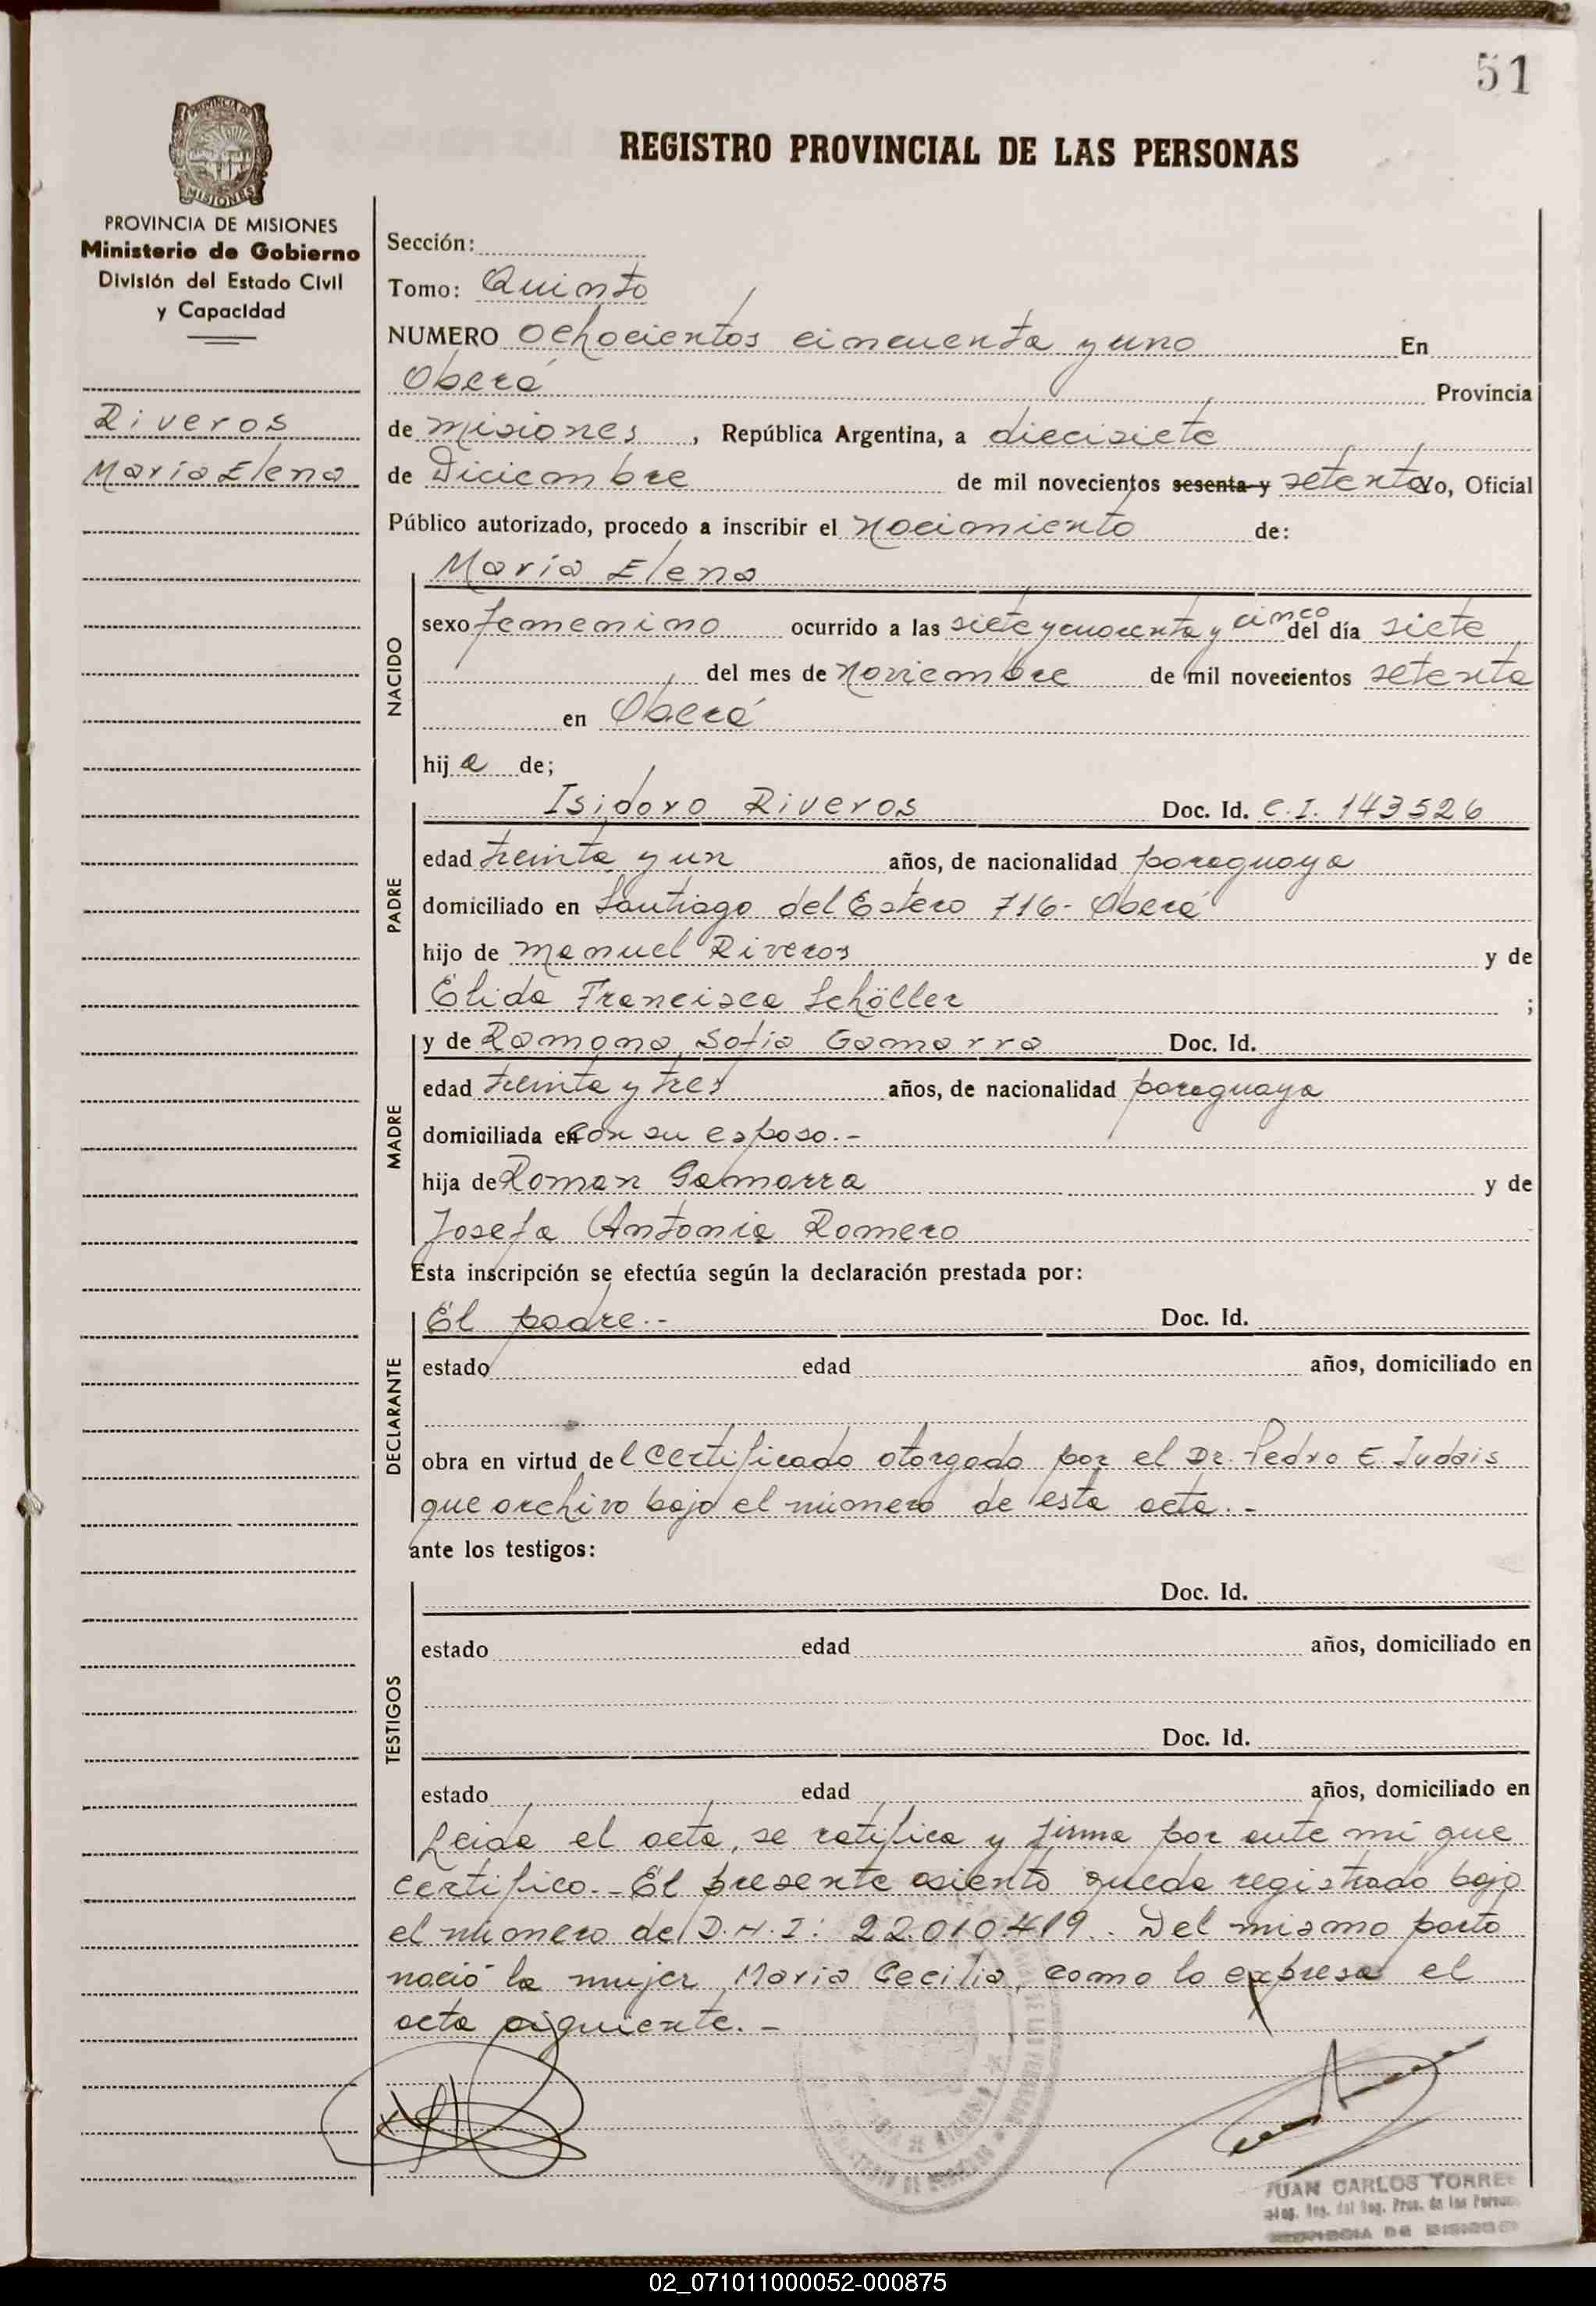 51
REGISTRO PROVINCIAL DE LAS PERSONAS
PROVINCIA DE MISIONES
Ministerio de Gobierno
División del Estado Civil
y Capacidad
Riveros
María Elena
Sección:
Tomo: Quinto
NUMERO Ochocientos cincuenta y uno En
Oberá Provincia
de Misiones, República Argentina, a diecisiete
de Diciembre de mil novecientos sesenta y setenta Yo, Oficial
Público autorizado, procedo a inscribir el Nacimiento de:
NACIDO
María Elena
sexo femenino ocurrido a las siete y cuarenta y cinco del día siete
del mes de Noviembre de mil novecientos setenta
en Oberá
hija de;
PADRE
Isidoro Riveros Doc. Id. C.I. 143526
edad treinta y un años, de nacionalidad paraguaya
domiciliado en Santiago del Estero 716- Oberá
hijo de Manuel Riveros y de
Elida Francisca Schöller ;
MADRE
y de Ramona Sofia Gamarra Doc. Id.
edad treinta y tres años, de nacionalidad paraguaya
domiciliada en con su esposo.-
hija de Roman Gamarra y de
Josefa Antonia Romero
Esta inscripción se efectúa según la declaración prestada por:
DECLARANTE
El padre.- Doc. Id.
estado edad años, domiciliado en
obra en virtud del certificado otorgado por el Dr. Pedro E. Judais
que archivo bajo el número de esta acta.-
ante los testigos:
TESTIGOS
Doc. Id.
estado edad años, domiciliado en
Doc. Id.
estado edad años, domiciliado en
Leida el acta, se ratifica y firma por ante mi que
certifico.- El presente asiento queda registrado bajo
el número del D.N.I: 22.010.419.. Del mismo parto
nació la mujer Maria Cecilia, como lo expresa el
acta siguiente.-
JUAN CARLOS TORRE
02_071011000052-000875